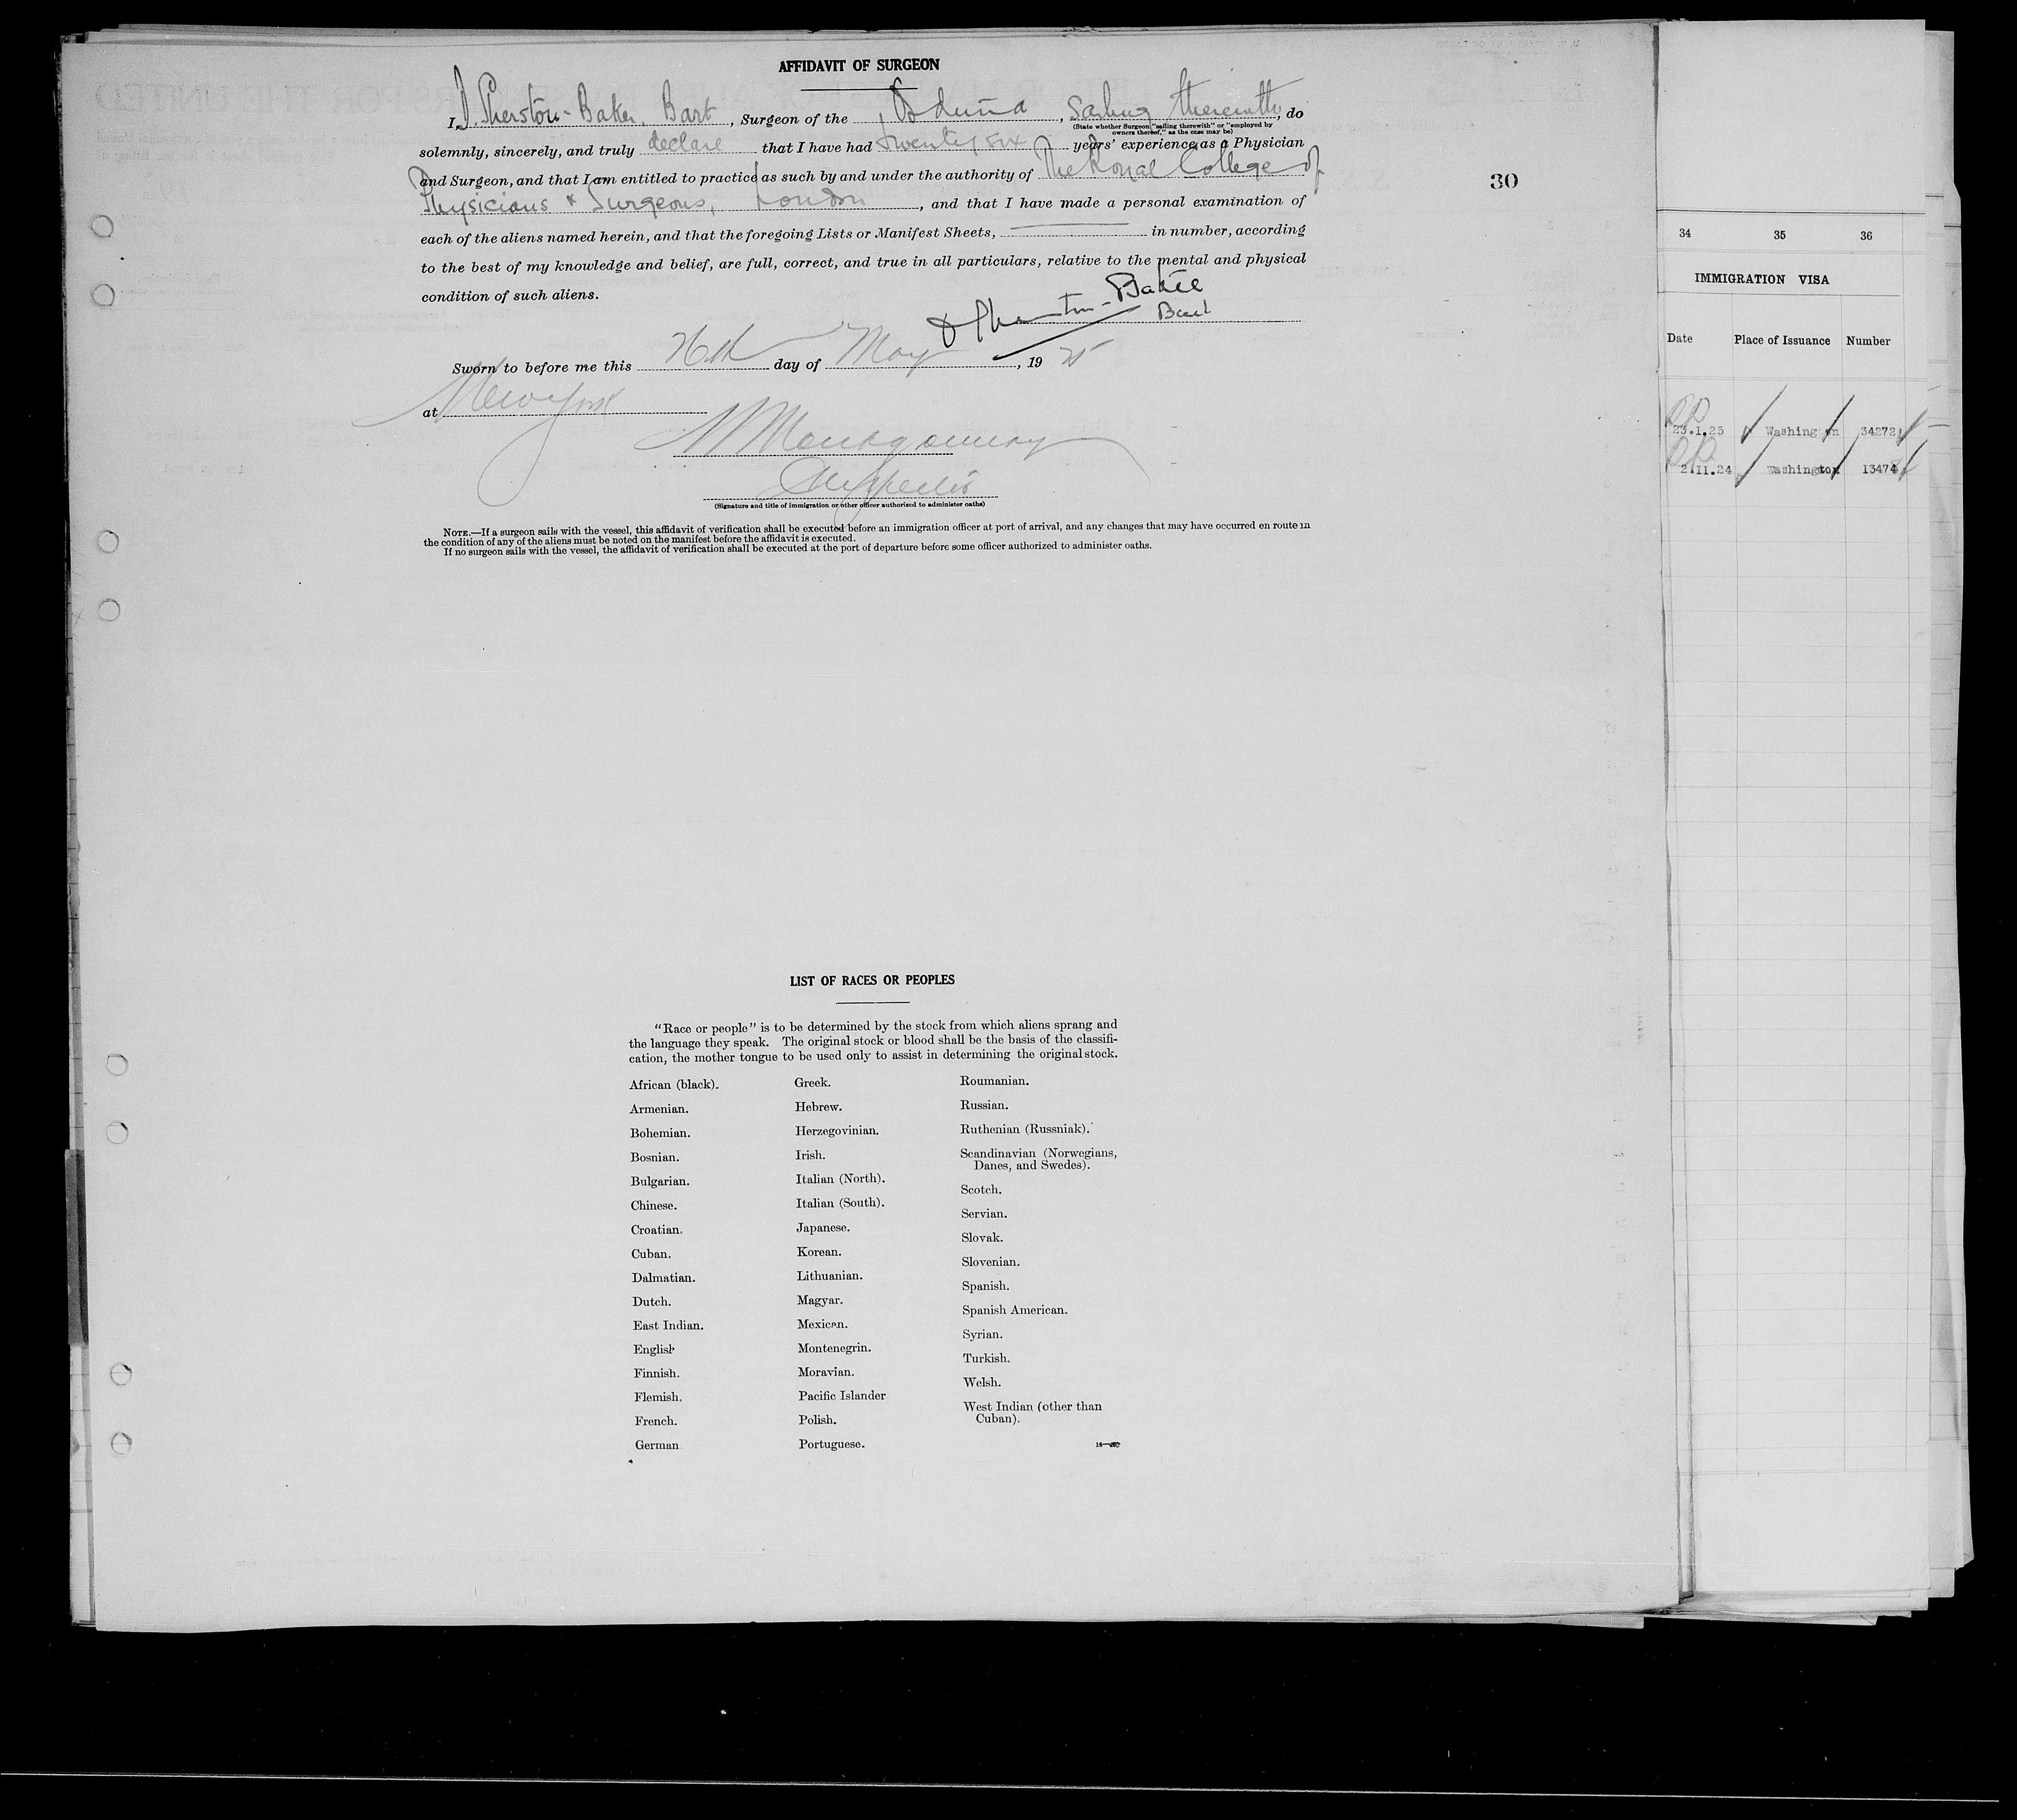 AFFIDAVIT OF SURGEON
I, D. Sherston-Baker, Bart, Surgeon of the Aduna, sailing therewith, do
(State whether Surgeon "sailing therewith" or "employed by
owners thereof," as the case may be)
solemnly, sincerely, and truly declare that I have had twenty six years' experience as a Physician
and Surgeon, and that I am entitled to practice as such by and under the authority of The Royal College of
Physicians & Surgeons, London, and that I have made a personal examination of
each of the aliens named herein, and that the foregoing Lists or Manifest Sheets, in number, according
to the best of my knowledge and belief, are full, correct, and true in all particulars, relative to the mental and physical
condition of such aliens.
Sherston-Baker
Bart
Sworn to before me this day of May, 1925
at New York
Montgomery
Inspector
(Signature and title of immigration or other officer authorized to administer oaths)
NOTE.—If a surgeon sails with the vessel, this affidavit of verification shall be executed before an immigration officer at port of arrival, and any changes that may have occurred en route in
the condition of any of the aliens must be noted on the manifest before the affidavit is executed.
If no surgeon sails with the vessel, the affidavit of verification shall be executed at the port of departure before some officer authorized to administer oaths.
30
LIST OF RACES OR PEOPLES
"Race or people" is to be determined by the stock from which aliens sprang and
the language they speak. The original stock or blood shall be the basis of the classifi-
cation, the mother tongue to be used only to assist in determining the original stock.
African (black).
Armenian.
Bohemian.
Bosnian.
Bulgarian.
Chinese.
Croatian.
Cuban.
Dalmatian.
Dutch.
East Indian.
English
Finnish.
Flemish.
French.
German
Greek.
Hebrew.
Herzegovinian.
Irish.
Italian (North).
Italian (South).
Japanese.
Korean.
Lithuanian.
Magyar.
Mexican.
Montenegrin.
Moravian.
Pacific Islander
Polish.
Portuguese.
Roumanian.
Russian.
Ruthenian (Russniak).
Scandinavian (Norwegians,
Danes, and Swedes).
Scotch.
Servian.
Slovak.
Slovenian.
Spanish.
Spanish American.
Syrian.
Turkish.
Welsh.
West Indian (other than
Cuban).
34 35 36
IMMIGRATION VISA
Date Place of Issuance Number
23.1.25 Washington 34272
2.II.24 Washington 13474